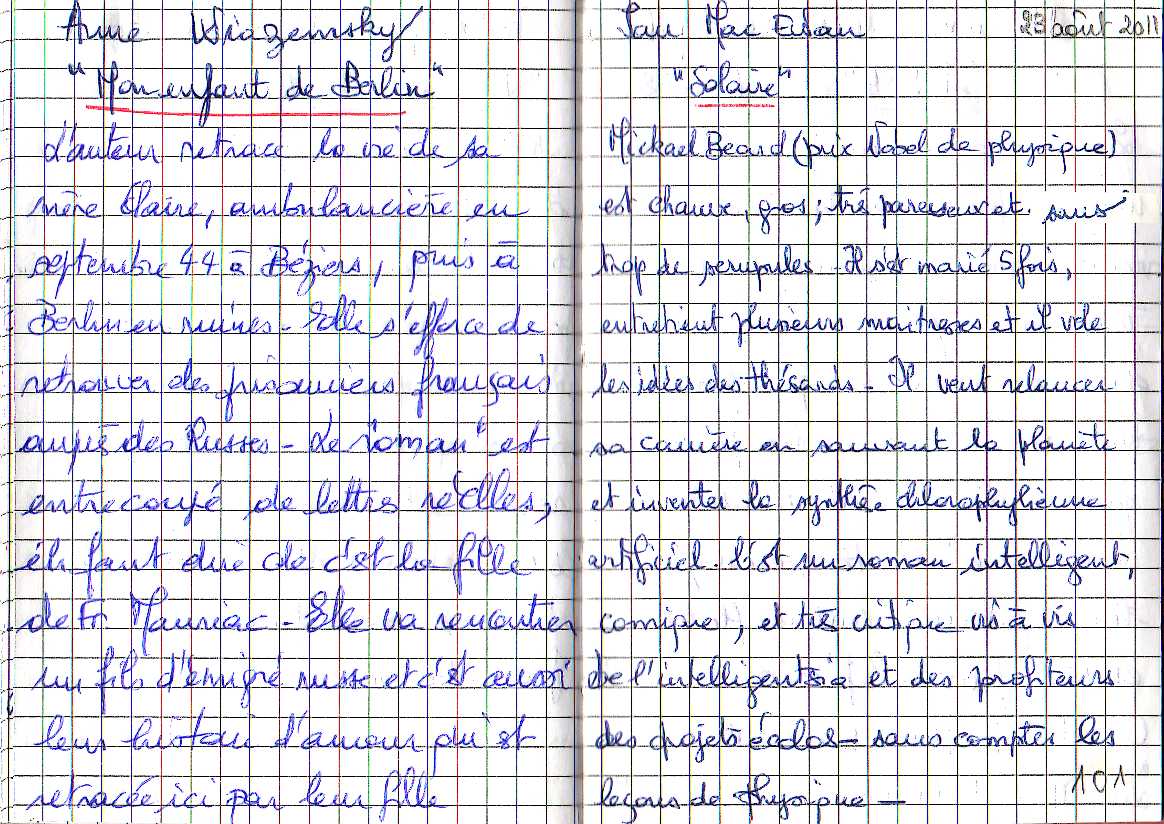 Anne Wiazemsky
"Mon enfant de Berlin"
L'auteur retrace la vie de sa
mère Claire, ambulancière en
septembre 44 à Béziers, puis à
Berlin en ruines - Elle s'efforce de
retrouver des prisonniers français
auprès des Russes - Le "roman" est
entrecoupé de lettres réelles,
faut dire que c'est la fille
de Fr. Mauriac - Elle va rencontrer
un fils d'émigré russe et c'est aussi
leur histoire d'amour qui est
retracée ici par leur fille
Ian Mac Ewan 23 août 2011
"Solaire"
Mickael Beard (prix Nobel de physique)
est chauve, gros ; très paresseux et sans
trop de scrupules - Il s'est marié 5 fois,
entretient plusieurs maitresses et il vole
les idées des thésards - Il veut relancer
sa carrière en sauvant la planète
et inventer la synthèse chlorophyllienne
artificiel. C'est un roman intelligent,
comique, et très critique vis à vis
de l'intelligentsia et des profiteurs
des projets écolos - sans compter les
leçons de physique —
101